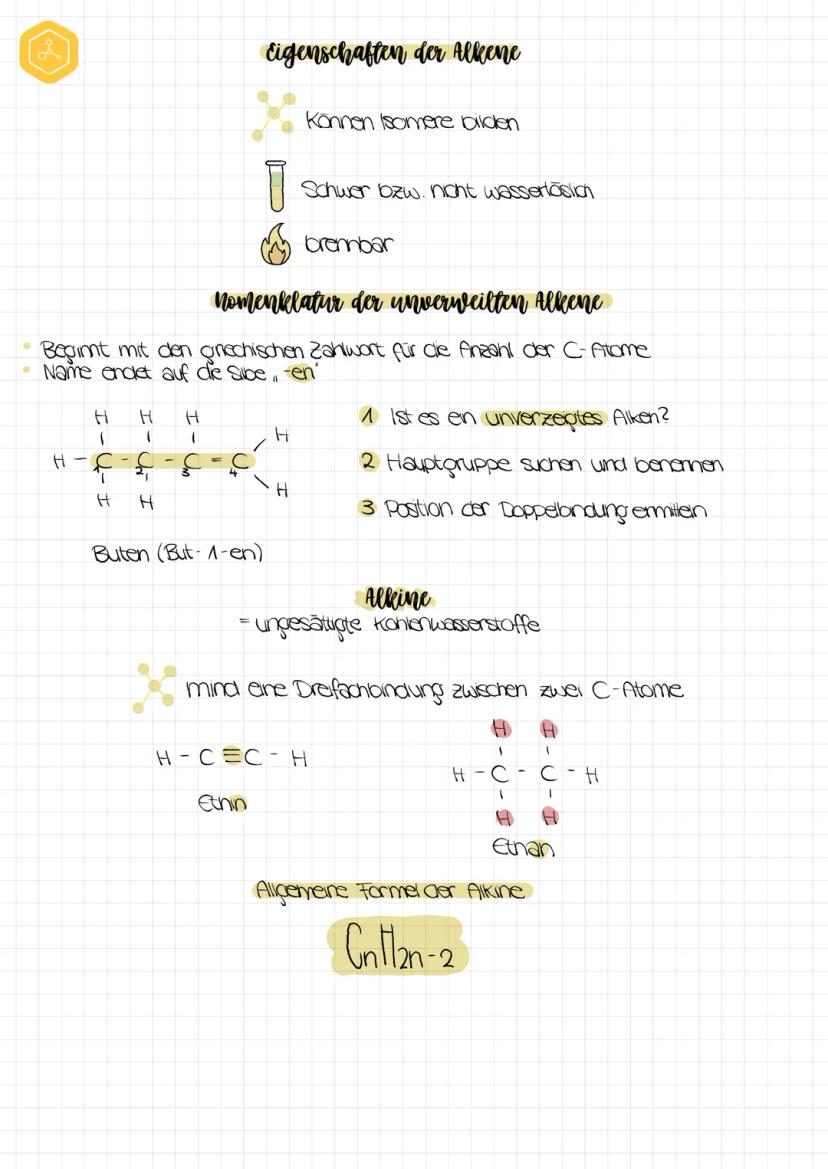 Eigenschaften der Alkene
Können Isomere bilden
Schwer bzw. nicht wasserlöslich
brennbar
Nomenklatur der unverweilten Alkene
Beginnt mit den griechischen Zahlwort für die Anzahl der C-Atome
Name endet auf die Silbe „-en"
H H H
H
H - C - C - C = C
1 2 3 4
H
H H
1 Ist es ein unverzegtes Alken?
2 Hauptgruppe suchen und benennen
3 Position der Doppelbindung ermitteln
Buten (But-1-en)
Alkine
= ungesättigte Kohlenwasserstoffe
mind eine Dreifachbindung zwischen zwei C-Atome
H - C ≡ C - H
Ethin
H H
H - C - C - H
H H
Ethan
Allgemeine Formel der Alkine
CnH2n-2